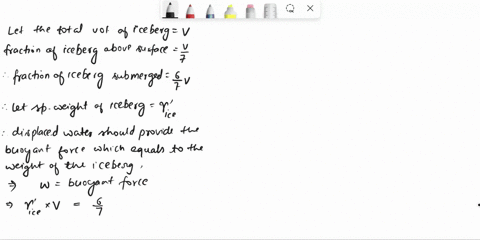 Let the total vol of iceberg = V
fraction of iceberg above surface = V/7
∴ fraction of iceberg submerged = 6/7 V
∴ Let sp. weight of iceberg = γ'ice
∵ displaced water should provide the
buoyant force which equals to the
weight of the iceberg.
⇒ w = buoyant force
⇒ γ'ice × V = 6/7